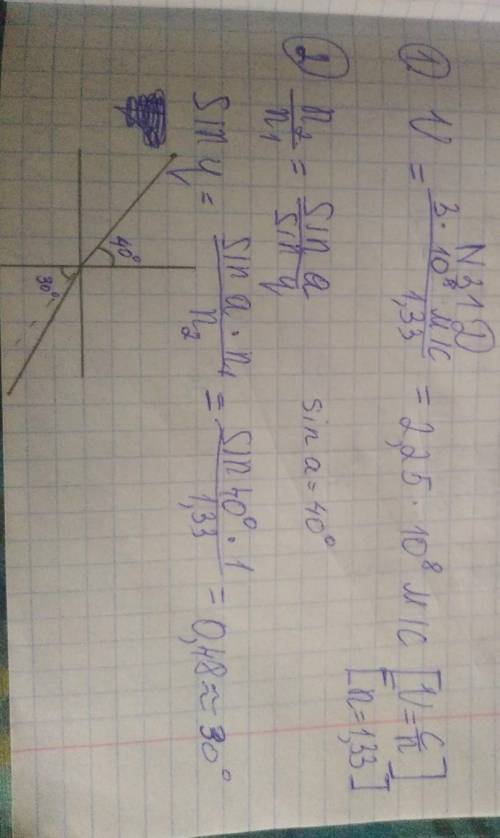 N 31 Д
① V = 3·10⁸ м/с / 1,33 = 2,25·10⁸ м/с [V = c/n]
[n = 1,33]
② n₂/n₁ = sin a / sin y sin a = 40°
sin y = sin a · n₁ / n₂ = sin 40° · 1 / 1,33 = 0,48 ≈ 30°
40°
30°